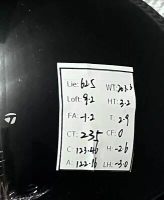 Lie: 62.5 WT: 203.3
Loft: 9.2 HT: 3.2
FA: -1.2 T: 2.9
CT: 235 CF: 0
C: 123.40 H: -2.6
A: 122.16 LH: -3.0